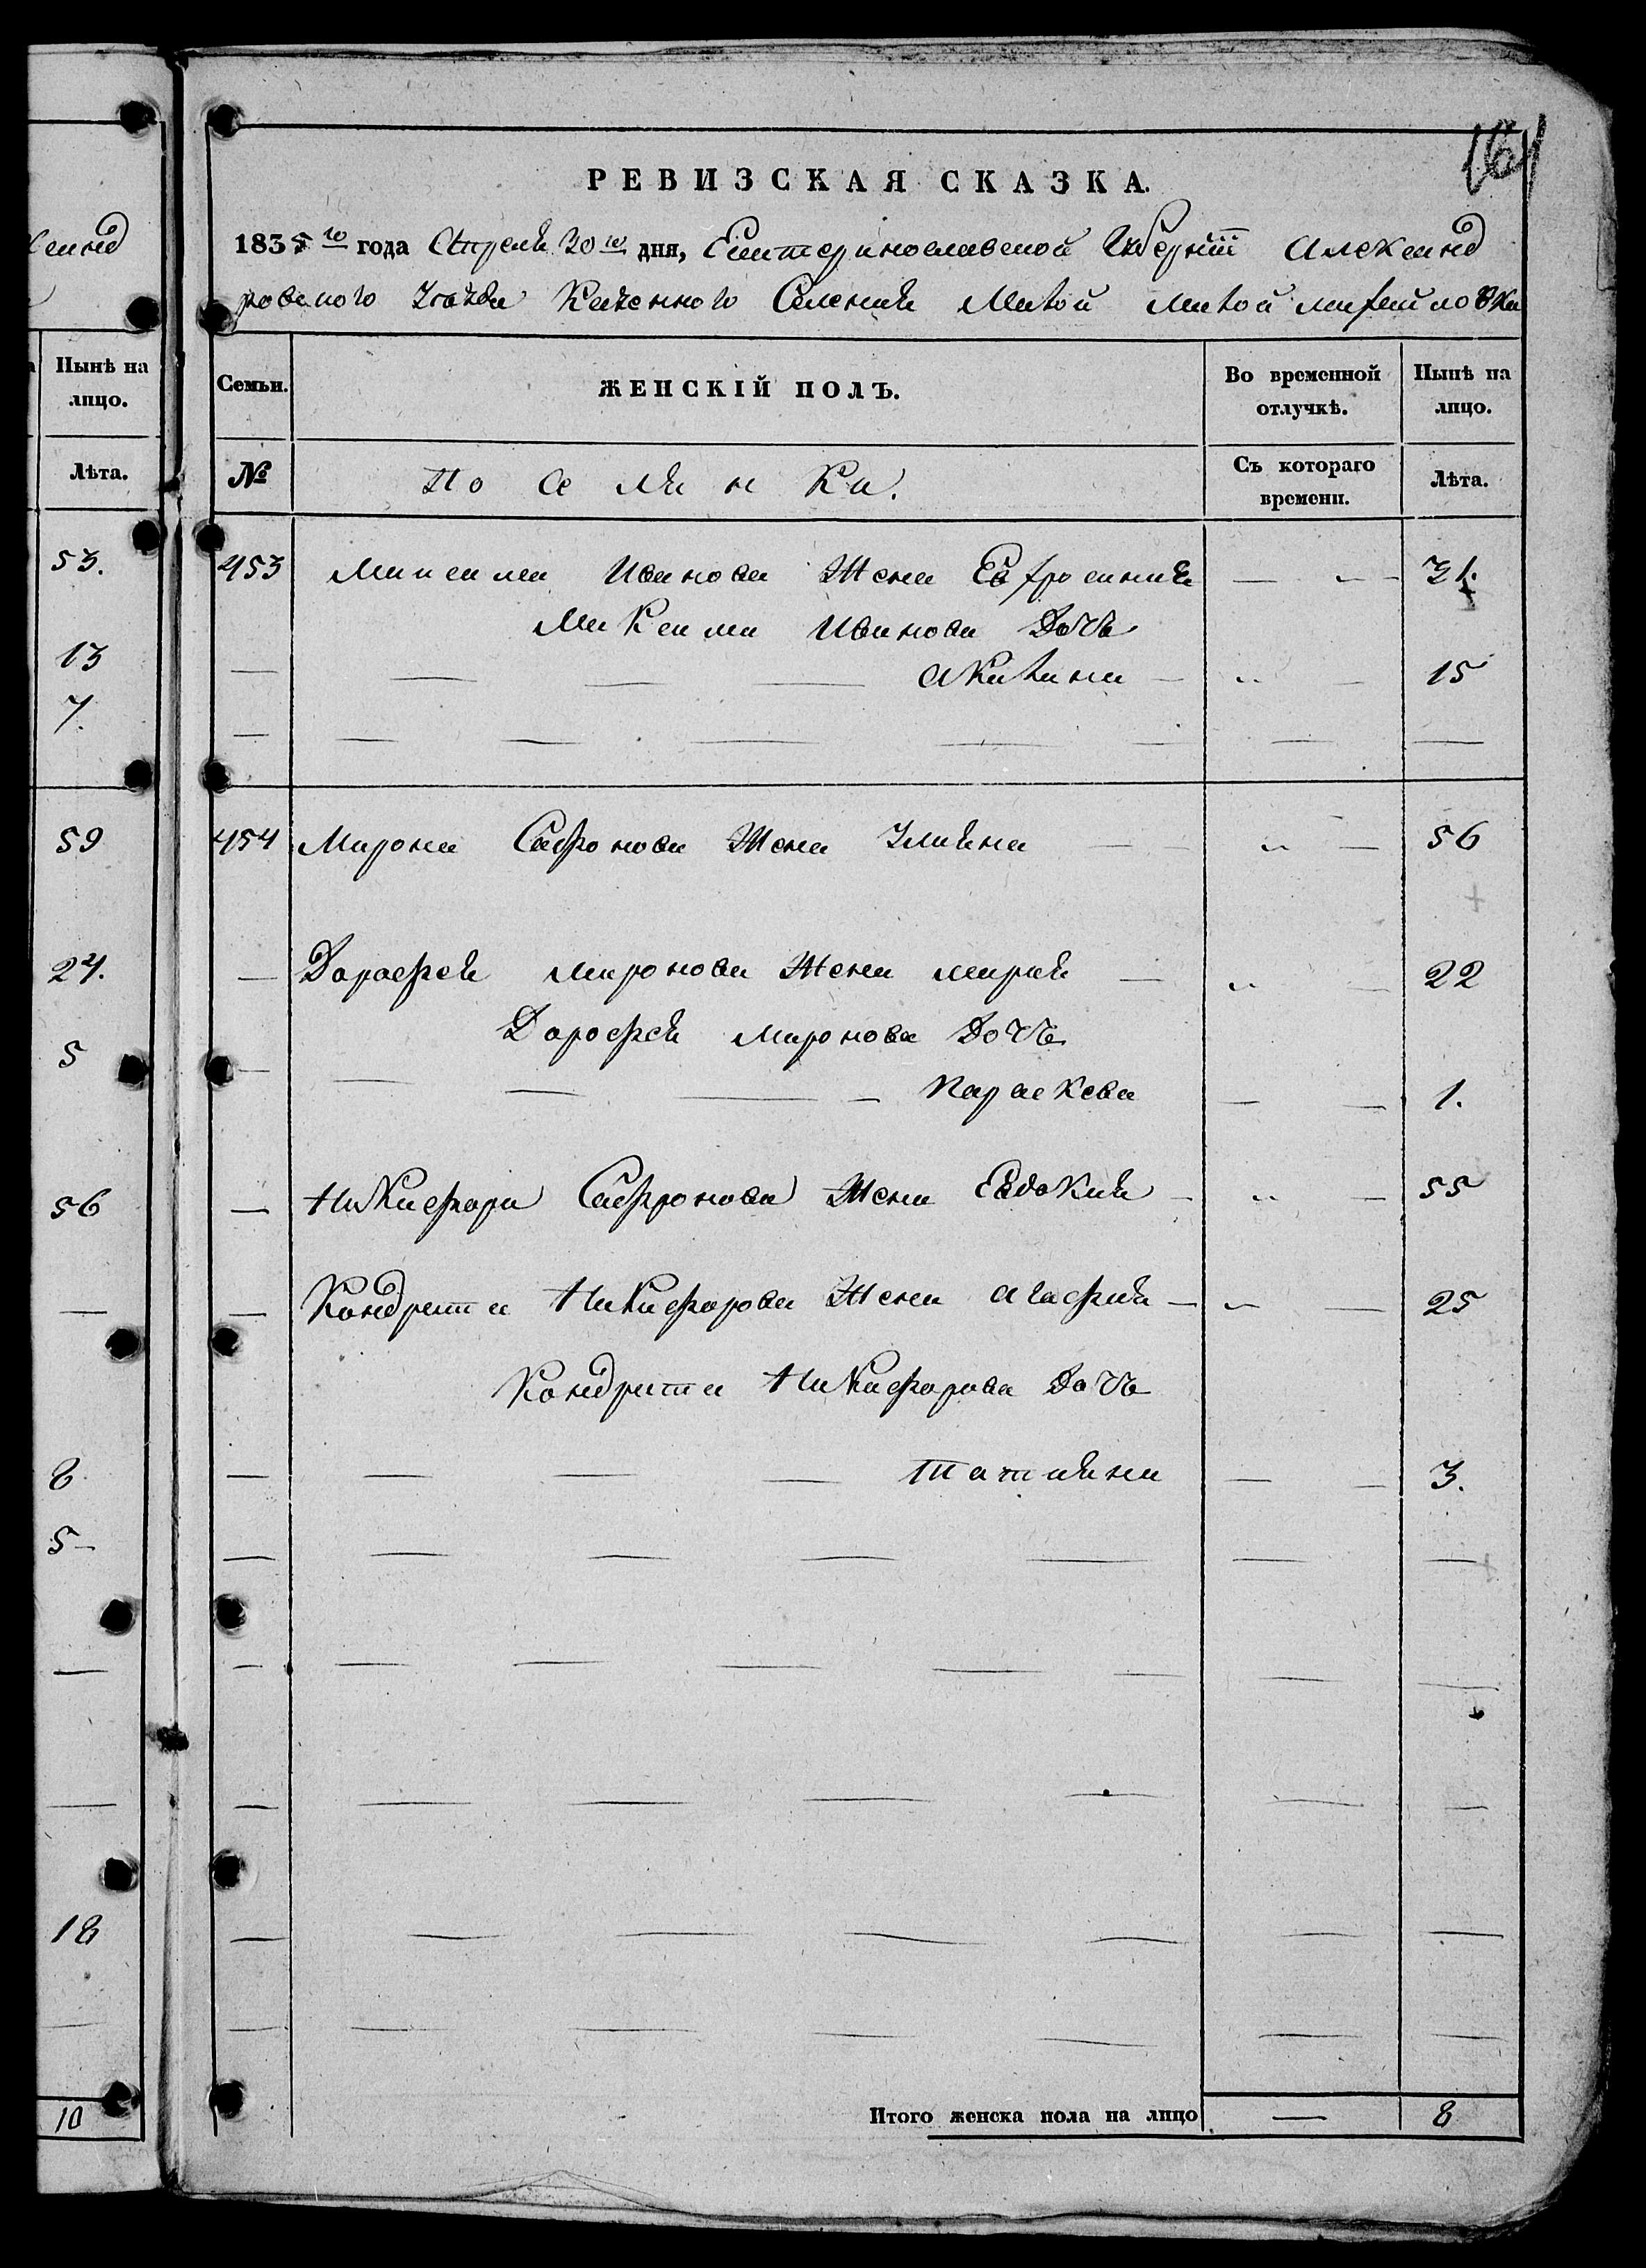 ксанд
Нынѣ на
лицо.
Лѣта.
53.
13
7.
59
24.
5
56
8
5
18
10
164
РЕВИЗСКАЯ СКАЗКА.
1835го года Апреля 20го дня, Екатеринославской Губернїи Александ
ровского Уезда Казенного Селения Малой Михайловки
Семьи. ЖЕНСКІЙ ПОЛЪ. Во временной отлучкѣ. Нынѣ на лицо.
№ Поселянка. Съ котораго времени. Лѣта.
453 Максима Иванова Жена Евфросиния — „ — 31.
Максима Иванова Дочь
— — — — Акилина — „ — 15
454 Мирона Сафронова Жена Ульяна — — „ — 56
— Дарофея Миронова Жена Мария — „ — 22
Дарофея Миронова Дочь
— — — — — Параскева — — 1.
— Никифора Сафронова Жена Евдокия — „ — 55
— Кондрата Никифорова Жена Агафия — „ — 25
Кондрата Никифорова Дочь
— — — — Татияна — — 3.
Итого женска пола на лицо — 8